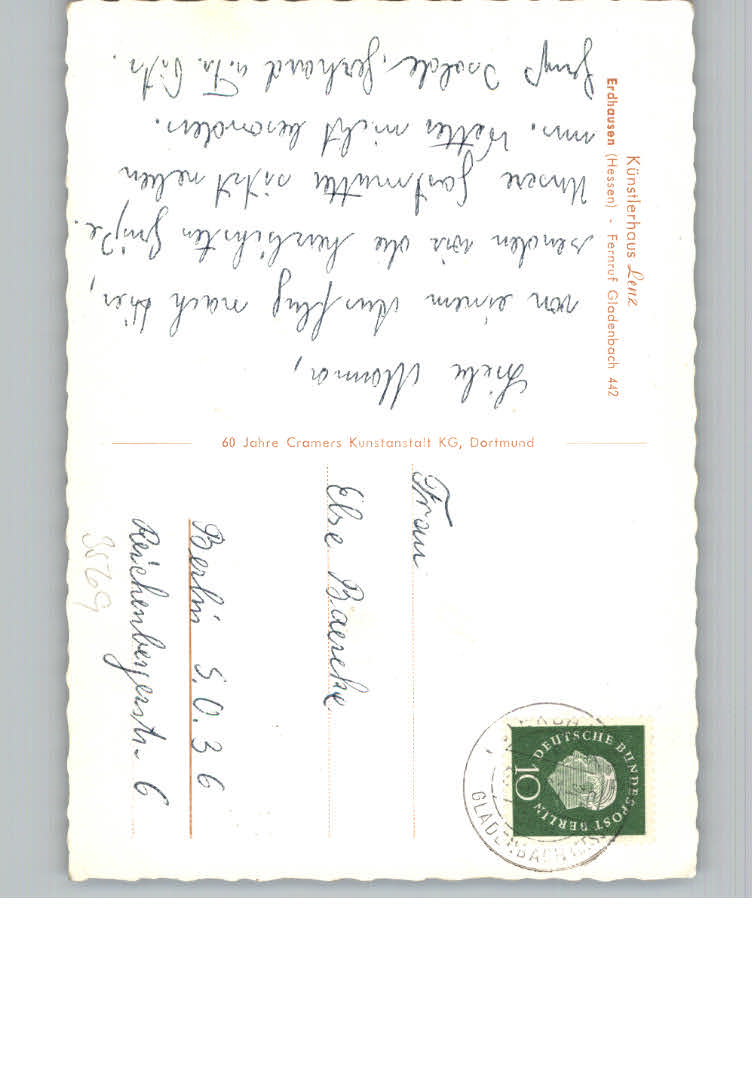 Künstlerhaus Lenz
Erdhausen (Hessen) · Fernruf Gladenbach 442
Liebe Mama,
von einem Ausflug nach hier,
senden wir die herzlichsten Grüße.
Unsere Gastmutter sitzt neben
uns. Wetter nicht besonders.
Gruß Isolde, Gerhard u.
60 Jahre Cramers Kunstanstalt KG, Dortmund
Frau
Else Baercke
Berlin S.O.36
Reichenbergerstr. 6
3569
DEUTSCHE BUNDESPOST BERLIN
10
GLADENBACH